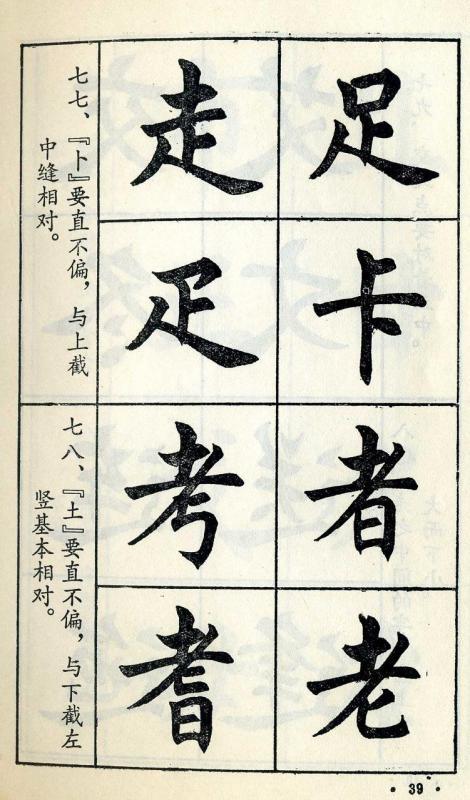 足
卡
走
疋
七七、『卜』要直不偏，与上截
中缝相对。
者
老
考
耆
七八、『土』要直不偏，与下截左
竖基本相对。
·39·